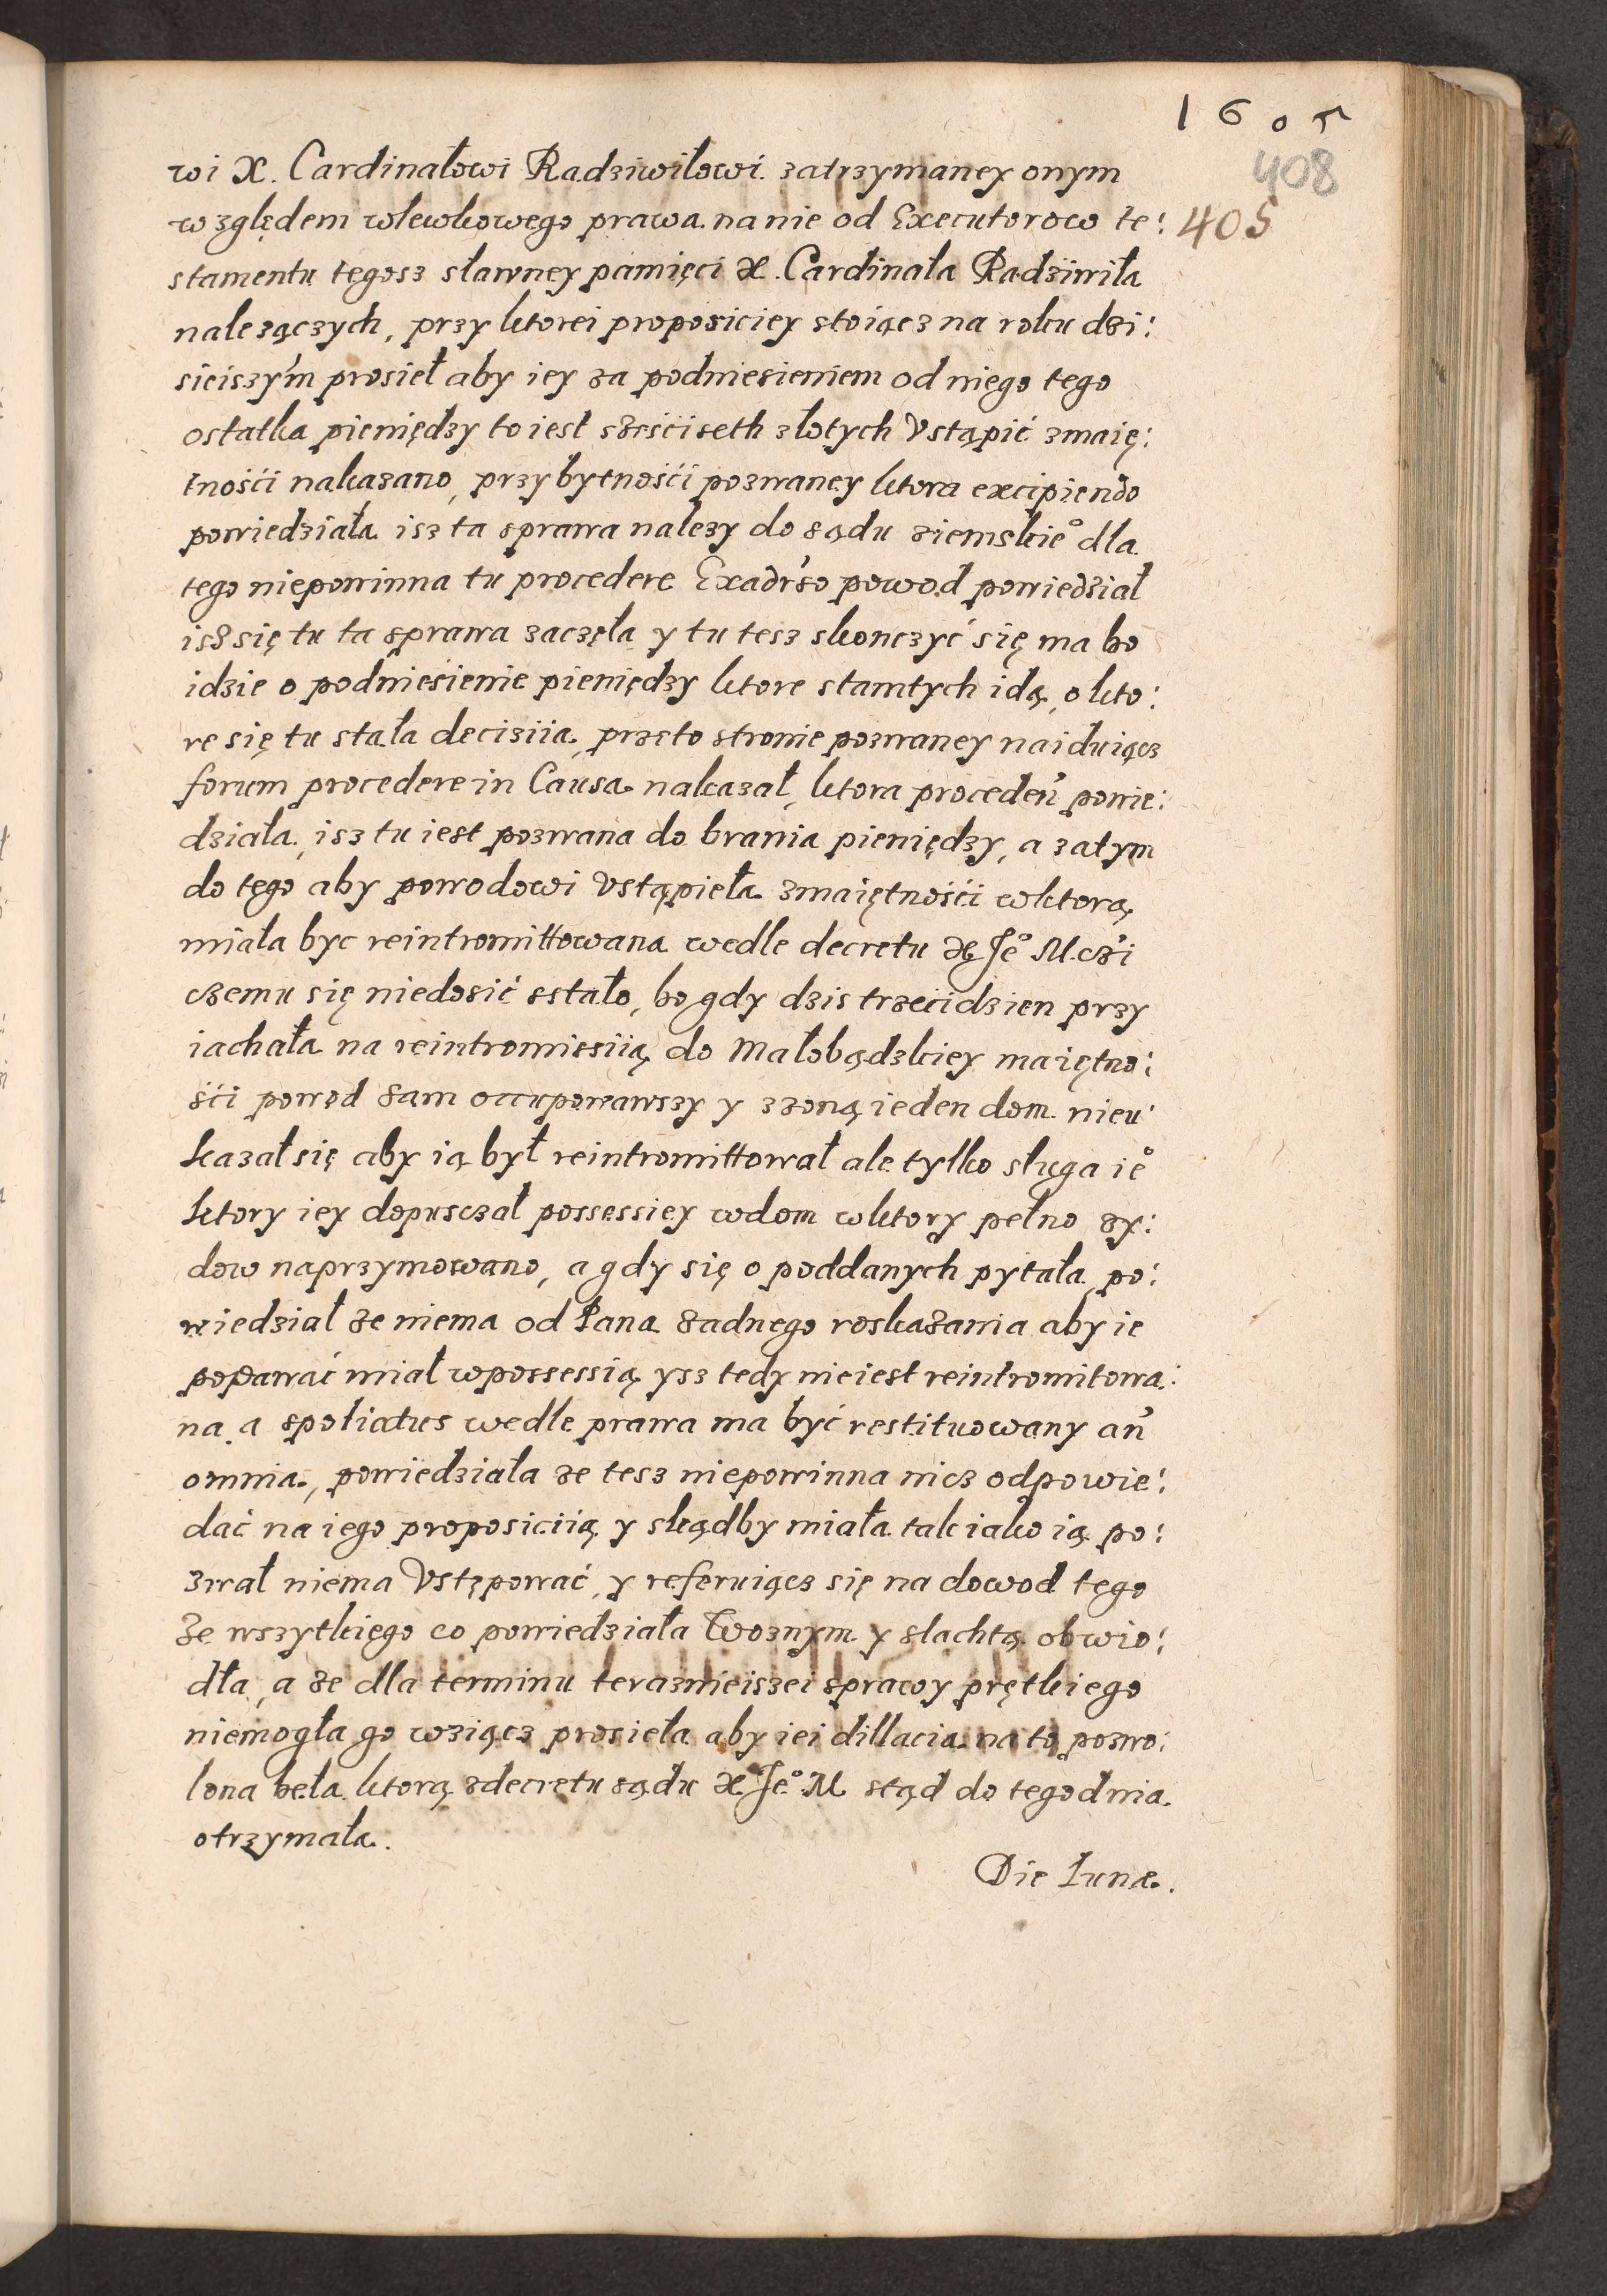 1605
408
wi X. Cardinałowi Radziwiłowi zatrzymaney onym
względem wlewkowego prawa na nie od Executorow te: 405
stamentu tegosz sławney pamięci X. Cardinała Radziwiła
nalezączych, przy ktorei proposiciey stoiącz na roku dzi:
sieiszym prosieł aby iey za podniesieniem od niego tego
ostatka pieniędzy to iest sześciseth złotych Vstąpić zmaię:
tności nakazano, przy bytności pozwaney ktora excipiendo
powiedziała isz ta sprawa nalezy do sądu ziemskie° dla
tego niepowinna tu procedere Exadrso powod powiedział
isz się tu ta sprawa zaczęła y tu tesz skonczyć się ma bo
idzie o podniesienie pieniędzy ktore stamtych idą, o kto:
re się tu stała deciziia, przeto stronie pozwaney naiduiącz
forum procedere in Causa nakazał, ktora proceden powie:
działa, isz tu iest pozwana do brania pieniędzy, a zatym
do tego aby powodowi Vstąpieła zmaiętności wktorą
miała byc reintromittowana wedle decretu X Je° M. czi
czemu się niedosić sstało, bo gdy dzis trzeci dzien przy
iachała na reintromissiią do Małobądzkiey maiętno:
ści powod sam occupowawszy y zzoną ieden dom nieu:
kazał się aby ią był reintromittował ale tylko sługa ie°
ktory iey dopusczał possessiey wdom wktory pełno zy:
dow naprzymowano, a gdy się o poddanych pytała, po:
wiedział ze niema od Pana zadnego roskazania aby ie
podawać miał wpossessią ysz tedy nieiest reintromitowa:
na, a spoliatus wedle prawa ma być restituowany an
omnia, powiedziała ze tesz niepowinna nicz odpowie:
dać na iego proposiciią y skądby miała tak iako ią po:
zwał niema Vstępować, y referuiącz się na dowod tego
Ze wszytkiego co powiedziała Woznym y slachtą obwio:
dła, a ze dla terminu terazniejszei sprawy prętkiego
niemogła go wziącz prosieła aby iei dillacia na to pozwo:
lona beła ktorą zdecretu sądu X Je° M stąd do tegodnia
otrzymała.
Die Lunæ.